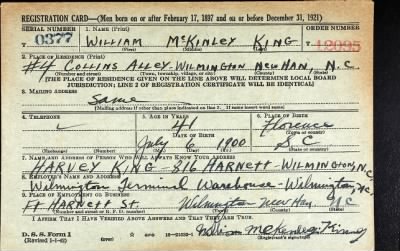 REGISTRATION CARD—(Men born on or after February 17, 1897 and on or before December 31, 1921)
SERIAL NUMBER 1. NAME (Print) ORDER NUMBER
0377 WILLIAM McKINLEY KING 12095
(First) (Middle) (Last)
2. PLACE OF RESIDENCE (Print)
#4 COLLINS ALLEY. WILMINGTON NEW HAN. N.C.
(Number and street) (Town, township, village, or city) (County) (State)
[THE PLACE OF RESIDENCE GIVEN ON THE LINE ABOVE WILL DETERMINE LOCAL BOARD
JURISDICTION; LINE 2 OF REGISTRATION CERTIFICATE WILL BE IDENTICAL]
3. MAILING ADDRESS
Same
[Mailing address if other than place indicated on line 2. If same insert word same]
4. TELEPHONE 5. AGE IN YEARS 6. PLACE OF BIRTH
41 Florence
DATE OF BIRTH (Town or county)
July 6 1900 S.C.
(Mo.) (Day) (Yr.) (State or country)
7. NAME AND ADDRESS OF PERSON WHO WILL ALWAYS KNOW YOUR ADDRESS
HARVEY KING - 816 HARNETT - WILMINGTON, N.C.
8. EMPLOYER'S NAME AND ADDRESS
Wilmington Terminal Warehouse - Wilmington, N.C.
9. PLACE OF EMPLOYMENT OR BUSINESS
Ft HARNETT St. Wilmington New Han. N.C.
(Number and street or R. F. D. number) (Town) (County) (State)
I AFFIRM THAT I HAVE VERIFIED ABOVE ANSWERS AND THAT THEY ARE TRUE.
D. S. S. Form 1
(Revised 1-1-42) (over) 16—21630-1 William McKinley King
(Registrant's signature)